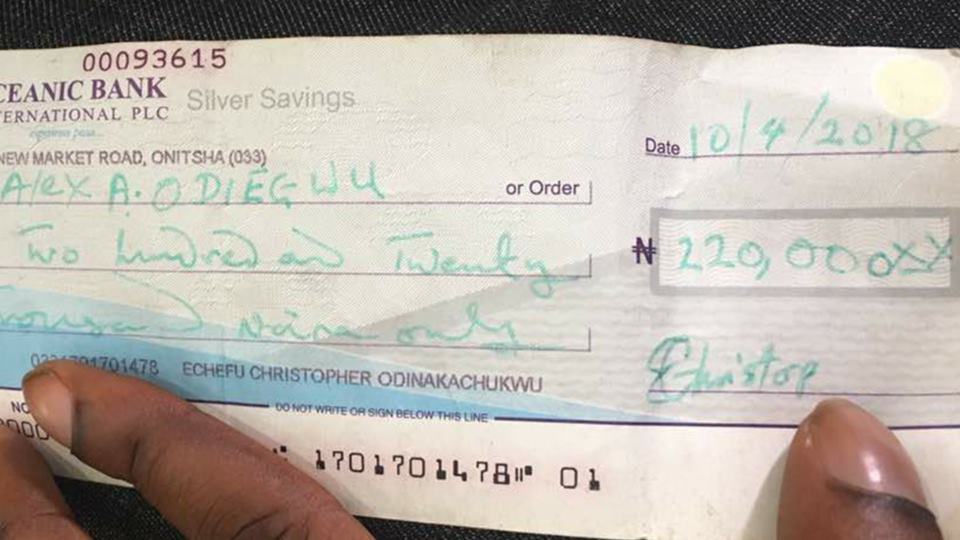 00093615
CEANIC BANK
TERNATIONAL PLC
Silver Savings
NEW MARKET ROAD, ONITSHA (033)
Date 10/4/2018
Alex A. ODIEGWU or Order
Two hundred and Twenty
₦ 220,000XX
Naira only
Christop
1701478 ECHEFU CHRISTOPHER ODINAKACHUKWU
DO NOT WRITE OR SIGN BELOW THIS LINE
1701701478 01